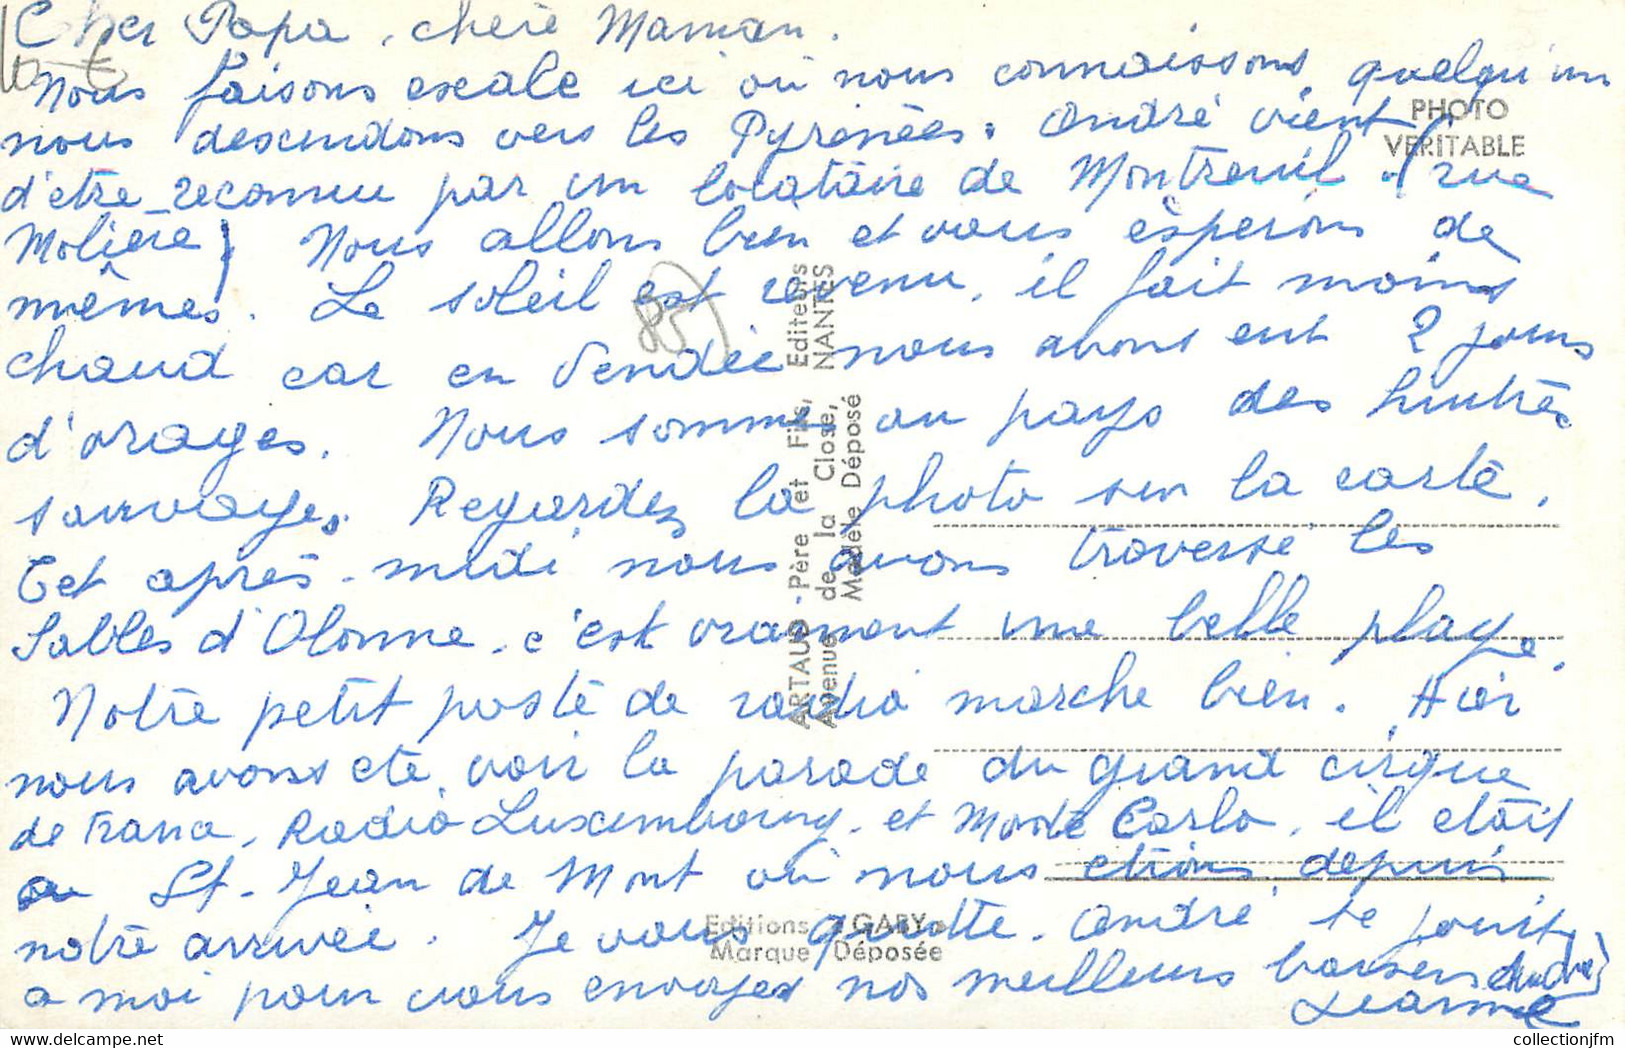 Cher Papa, chère Maman.
Nous faisons escale ici où nous connaissons quelqu'un
nous descendons vers les Pyrénées. André vient
d'etre reconnu par un locataire de Montreuil (rue
Molière) Nous allons bien et vous espèrons de
mêmes. Le soleil est revenu, il fait moins
chaud car en Vendée nous avons eut 2 jours
d'orages. Nous sommes au pays des huitres
sauvages. Regardez la photo sur la carte.
Cet après-midi nous avons traversé les
Sables d'Olonne, c'est vraiment une belle plage.
Notre petit poste de radio marche bien. Hier
nous avons eté voir la parade du grand cirque
de France, Radio Luxembourg, et Monte Carlo, il etait
a St-Jean de Mont où nous etions depuis
notre arrivée. Je vous quitte. André se joint
a moi pour vous envoyer nos meilleurs baisers
Jeanne
85
PHOTO
VERITABLE
ARTAUD Père et Fils, Editeurs
Avenue de la Close, NANTES
Modèle Déposé
Editions "GABY"
Marque Déposée
collectionjfm